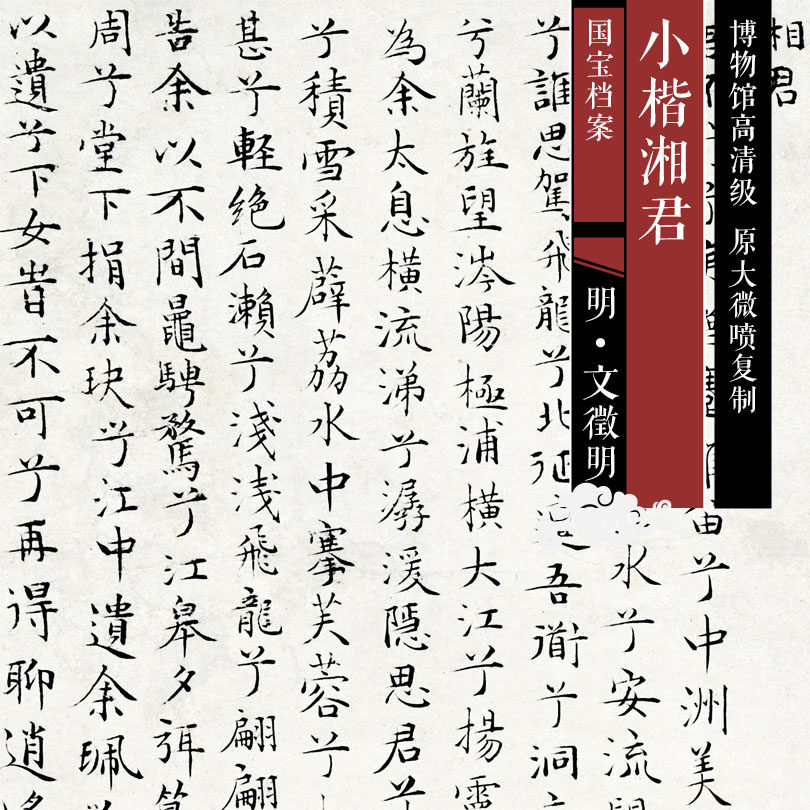 博物馆高清级 原大微喷复制
小楷湘君
国宝档案
明·文徵明
君
兮中洲美
水兮安流
兮誰思駕飛龍兮北征
吾衟兮洞
兮蘭旌望涔陽極浦橫大江兮揚
為余太息橫流涕兮潺湲隱思君兮
兮積雪采薜荔水中搴芙蓉兮
甚兮軽絕石瀨兮淺淺飛龍兮翩翩
告余以不間鼂騁騖兮江皋夕弭
周兮堂下捐余玦兮江中遺余珮
以遺兮下女旹不可兮再得聊逍